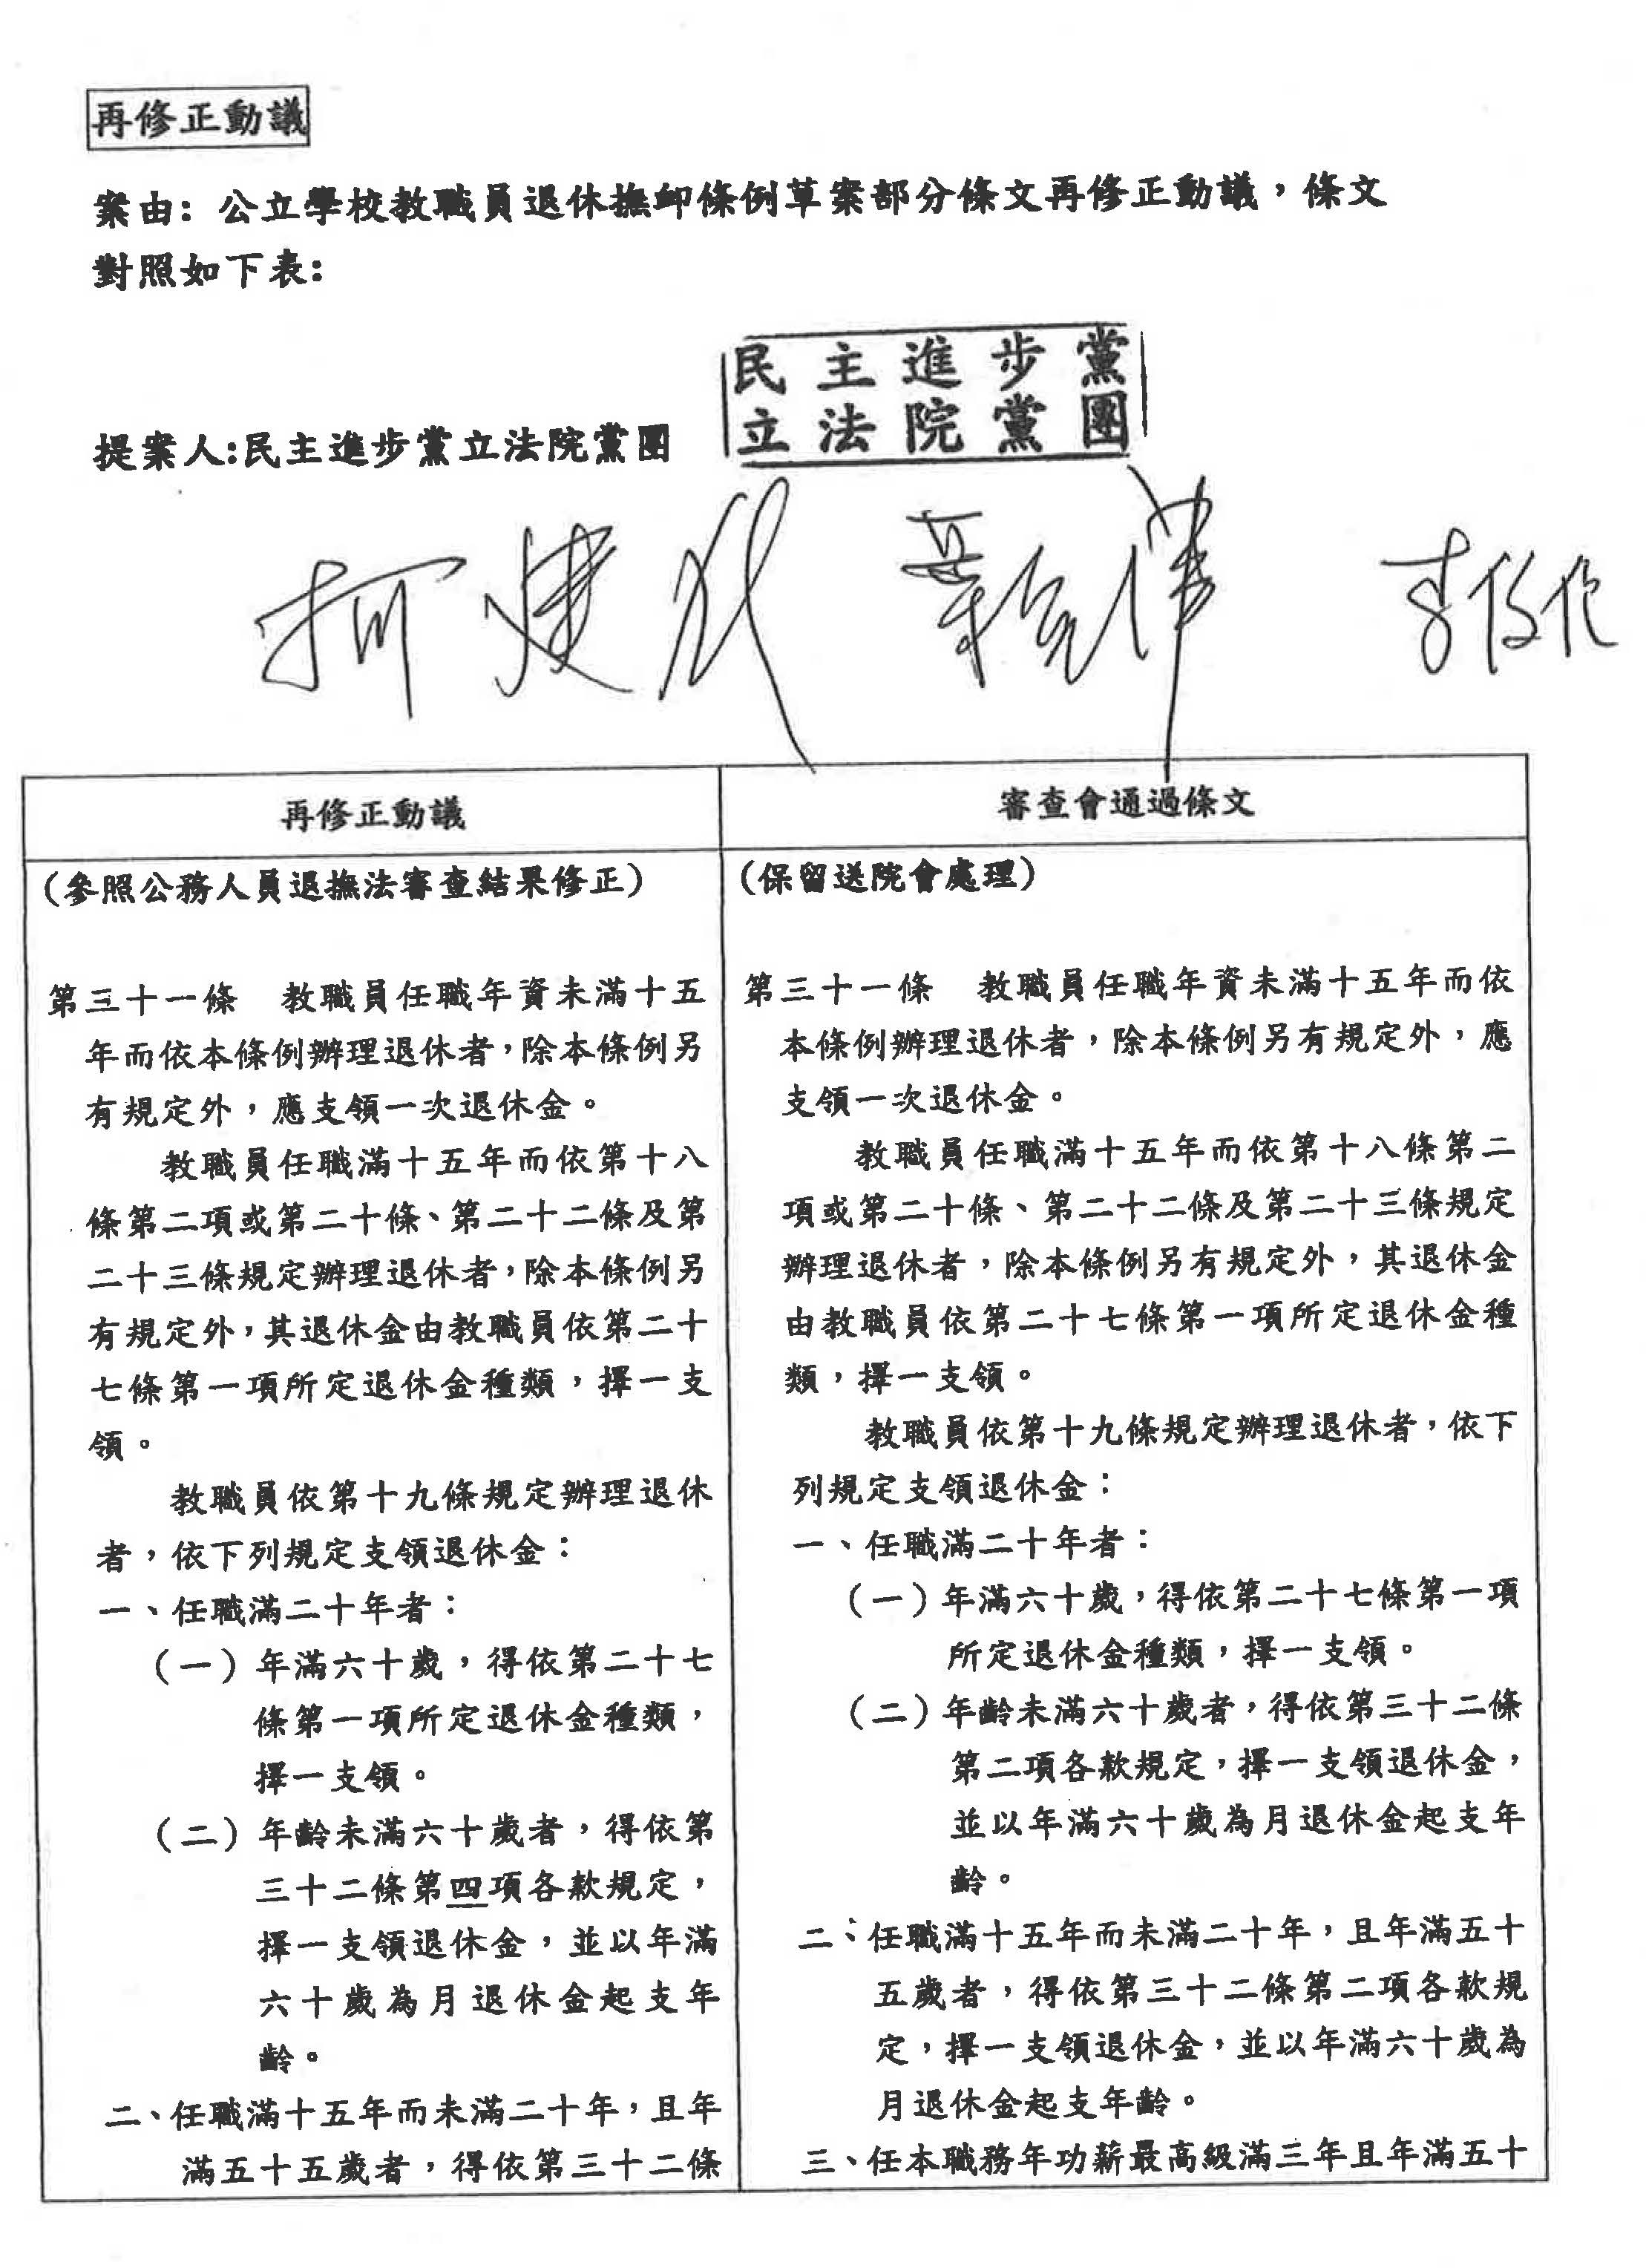 再修正動議
案由：公立學校教職員退休撫卹條例草案部分條文再修正動議，條文
對照如下表：
民主進步黨
立法院黨團
提案人：民主進步黨立法院黨團
柯建銘
李俊俋
再修正動議
(參照公務人員退撫法審查結果修正)
第三十一條　教職員任職年資未滿十五
年而依本條例辦理退休者，除本條例另
有規定外，應支領一次退休金。
教職員任職滿十五年而依第十八
條第二項或第二十條、第二十二條及第
二十三條規定辦理退休者，除本條例另
有規定外，其退休金由教職員依第二十
七條第一項所定退休金種類，擇一支
領。
教職員依第十九條規定辦理退休
者，依下列規定支領退休金：
一、任職滿二十年者：
(一) 年滿六十歲，得依第二十七
條第一項所定退休金種類，
擇一支領。
(二) 年齡未滿六十歲者，得依第
三十二條第四項各款規定，
擇一支領退休金，並以年滿
六十歲為月退休金起支年
齡。
二、任職滿十五年而未滿二十年，且年
滿五十五歲者，得依第三十二條
審查會通過條文
(保留送院會處理)
第三十一條　教職員任職年資未滿十五年而依
本條例辦理退休者，除本條例另有規定外，應
支領一次退休金。
教職員任職滿十五年而依第十八條第二
項或第二十條、第二十二條及第二十三條規定
辦理退休者，除本條例另有規定外，其退休金
由教職員依第二十七條第一項所定退休金種
類，擇一支領。
教職員依第十九條規定辦理退休者，依下
列規定支領退休金：
一、任職滿二十年者：
(一) 年滿六十歲，得依第二十七條第一項
所定退休金種類，擇一支領。
(二) 年齡未滿六十歲者，得依第三十二條
第二項各款規定，擇一支領退休金，
並以年滿六十歲為月退休金起支年
齡。
二、任職滿十五年而未滿二十年，且年滿五十
五歲者，得依第三十二條第二項各款規
定，擇一支領退休金，並以年滿六十歲為
月退休金起支年齡。
三、任本職務年功薪最高級滿三年且年滿五十